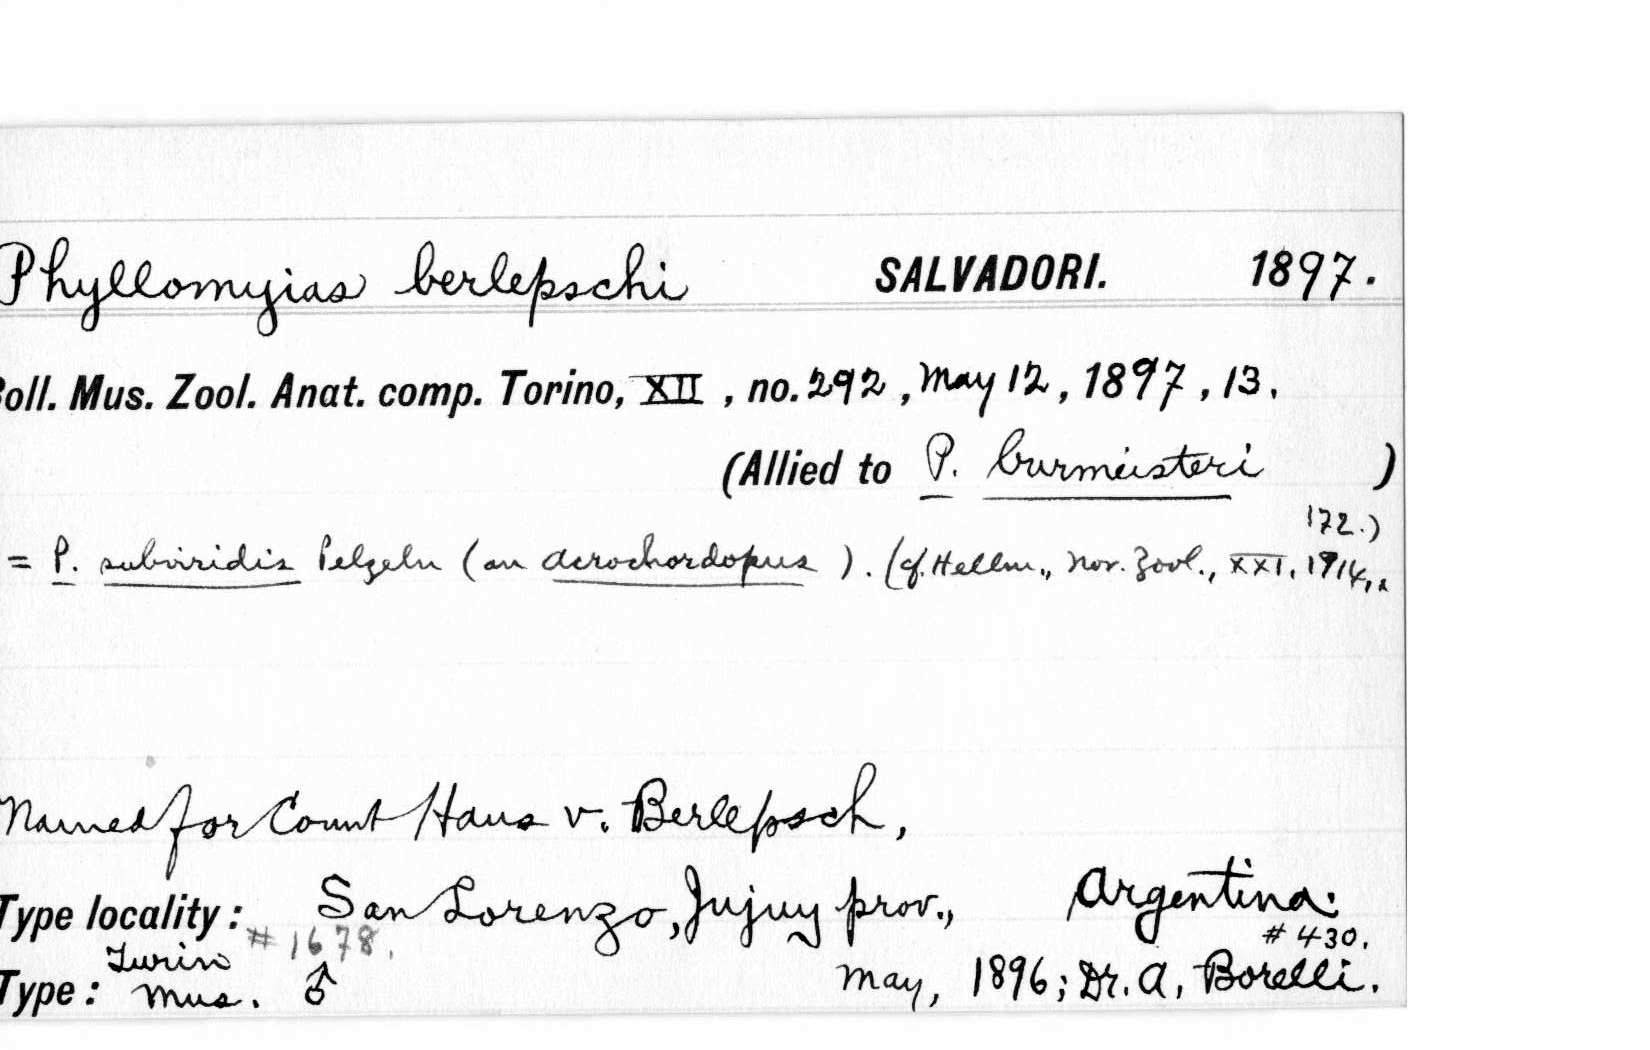 Phyllomyias berlepschi SALVADORI. 1897.
Boll. Mus. Zool. Anat. comp. Torino, XII, no. 292, May 12, 1897, 13.
(Allied to P. burmeisteri )
= P. subviridis Pelzeln (an Acrochordopus ). (cf. Hellm., Nov. Zool., XXI, 1914, 172.)
Named for Count Hans v. Berlepsch,
Type locality: San Lorenzo, Jujuy prov., Argentina.
# 1678. # 430.
Type: Turin Mus. ♂ May, 1896; Dr. A. Borelli.